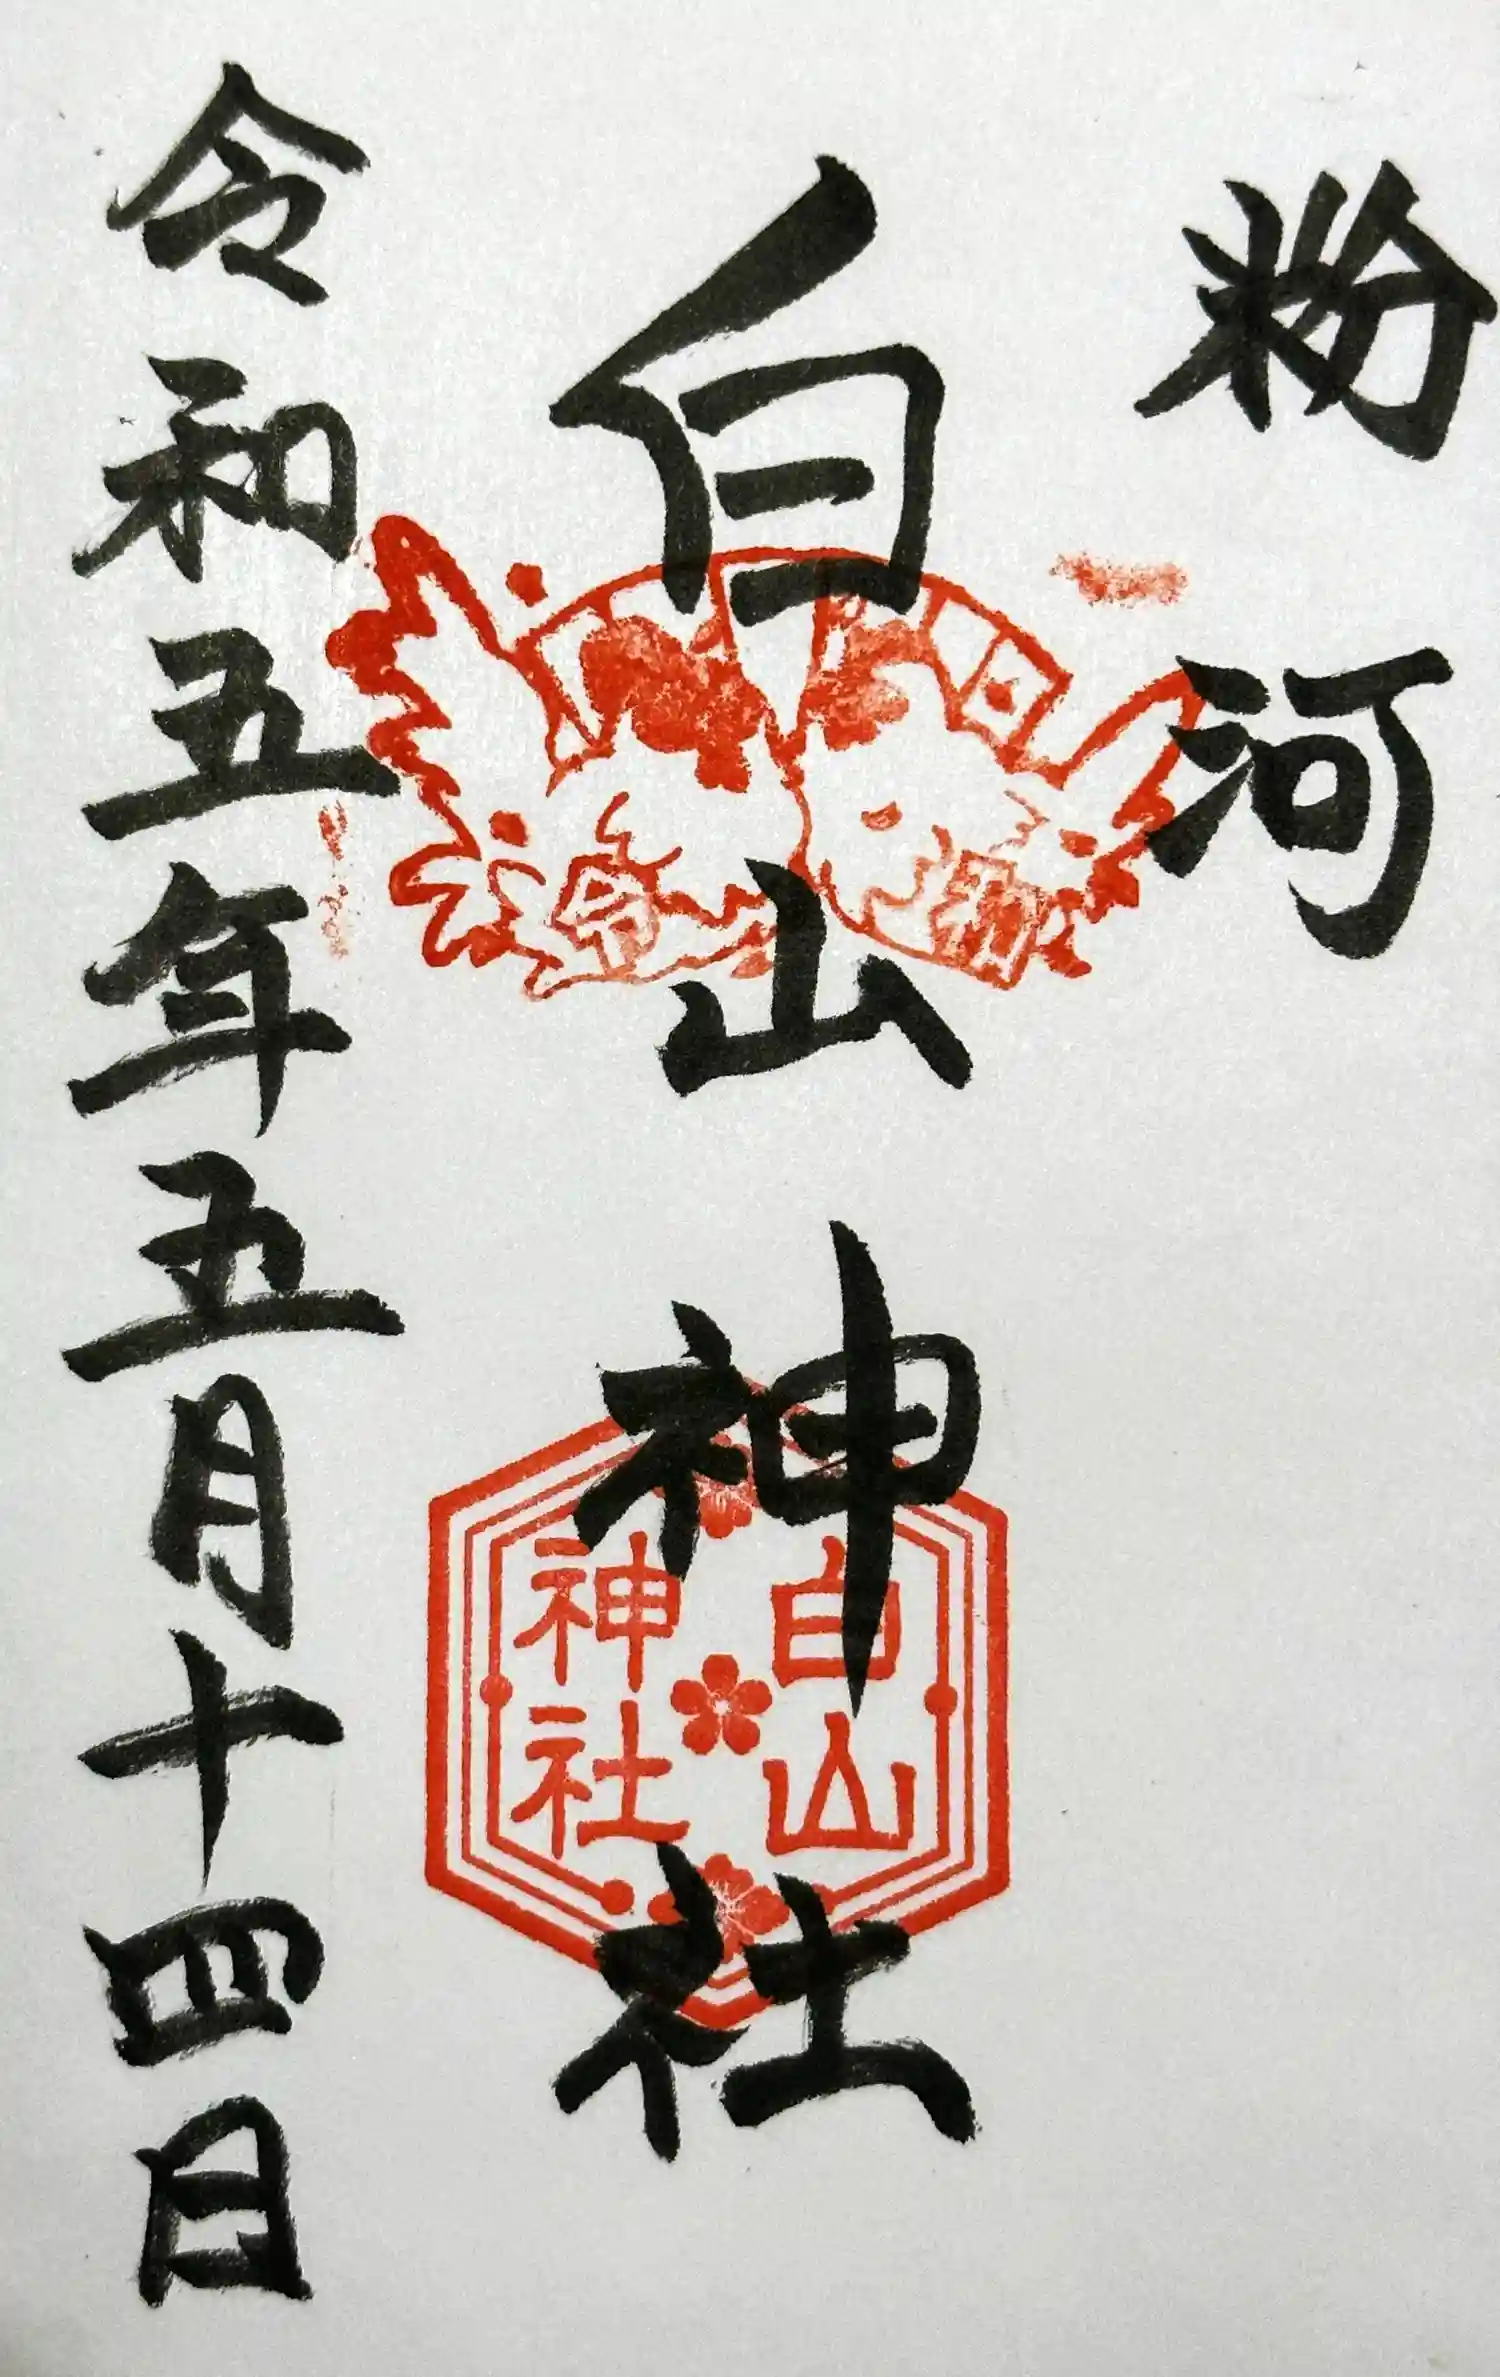 粉河
白山神社
令和
白山
神社
令和五年五月十四日